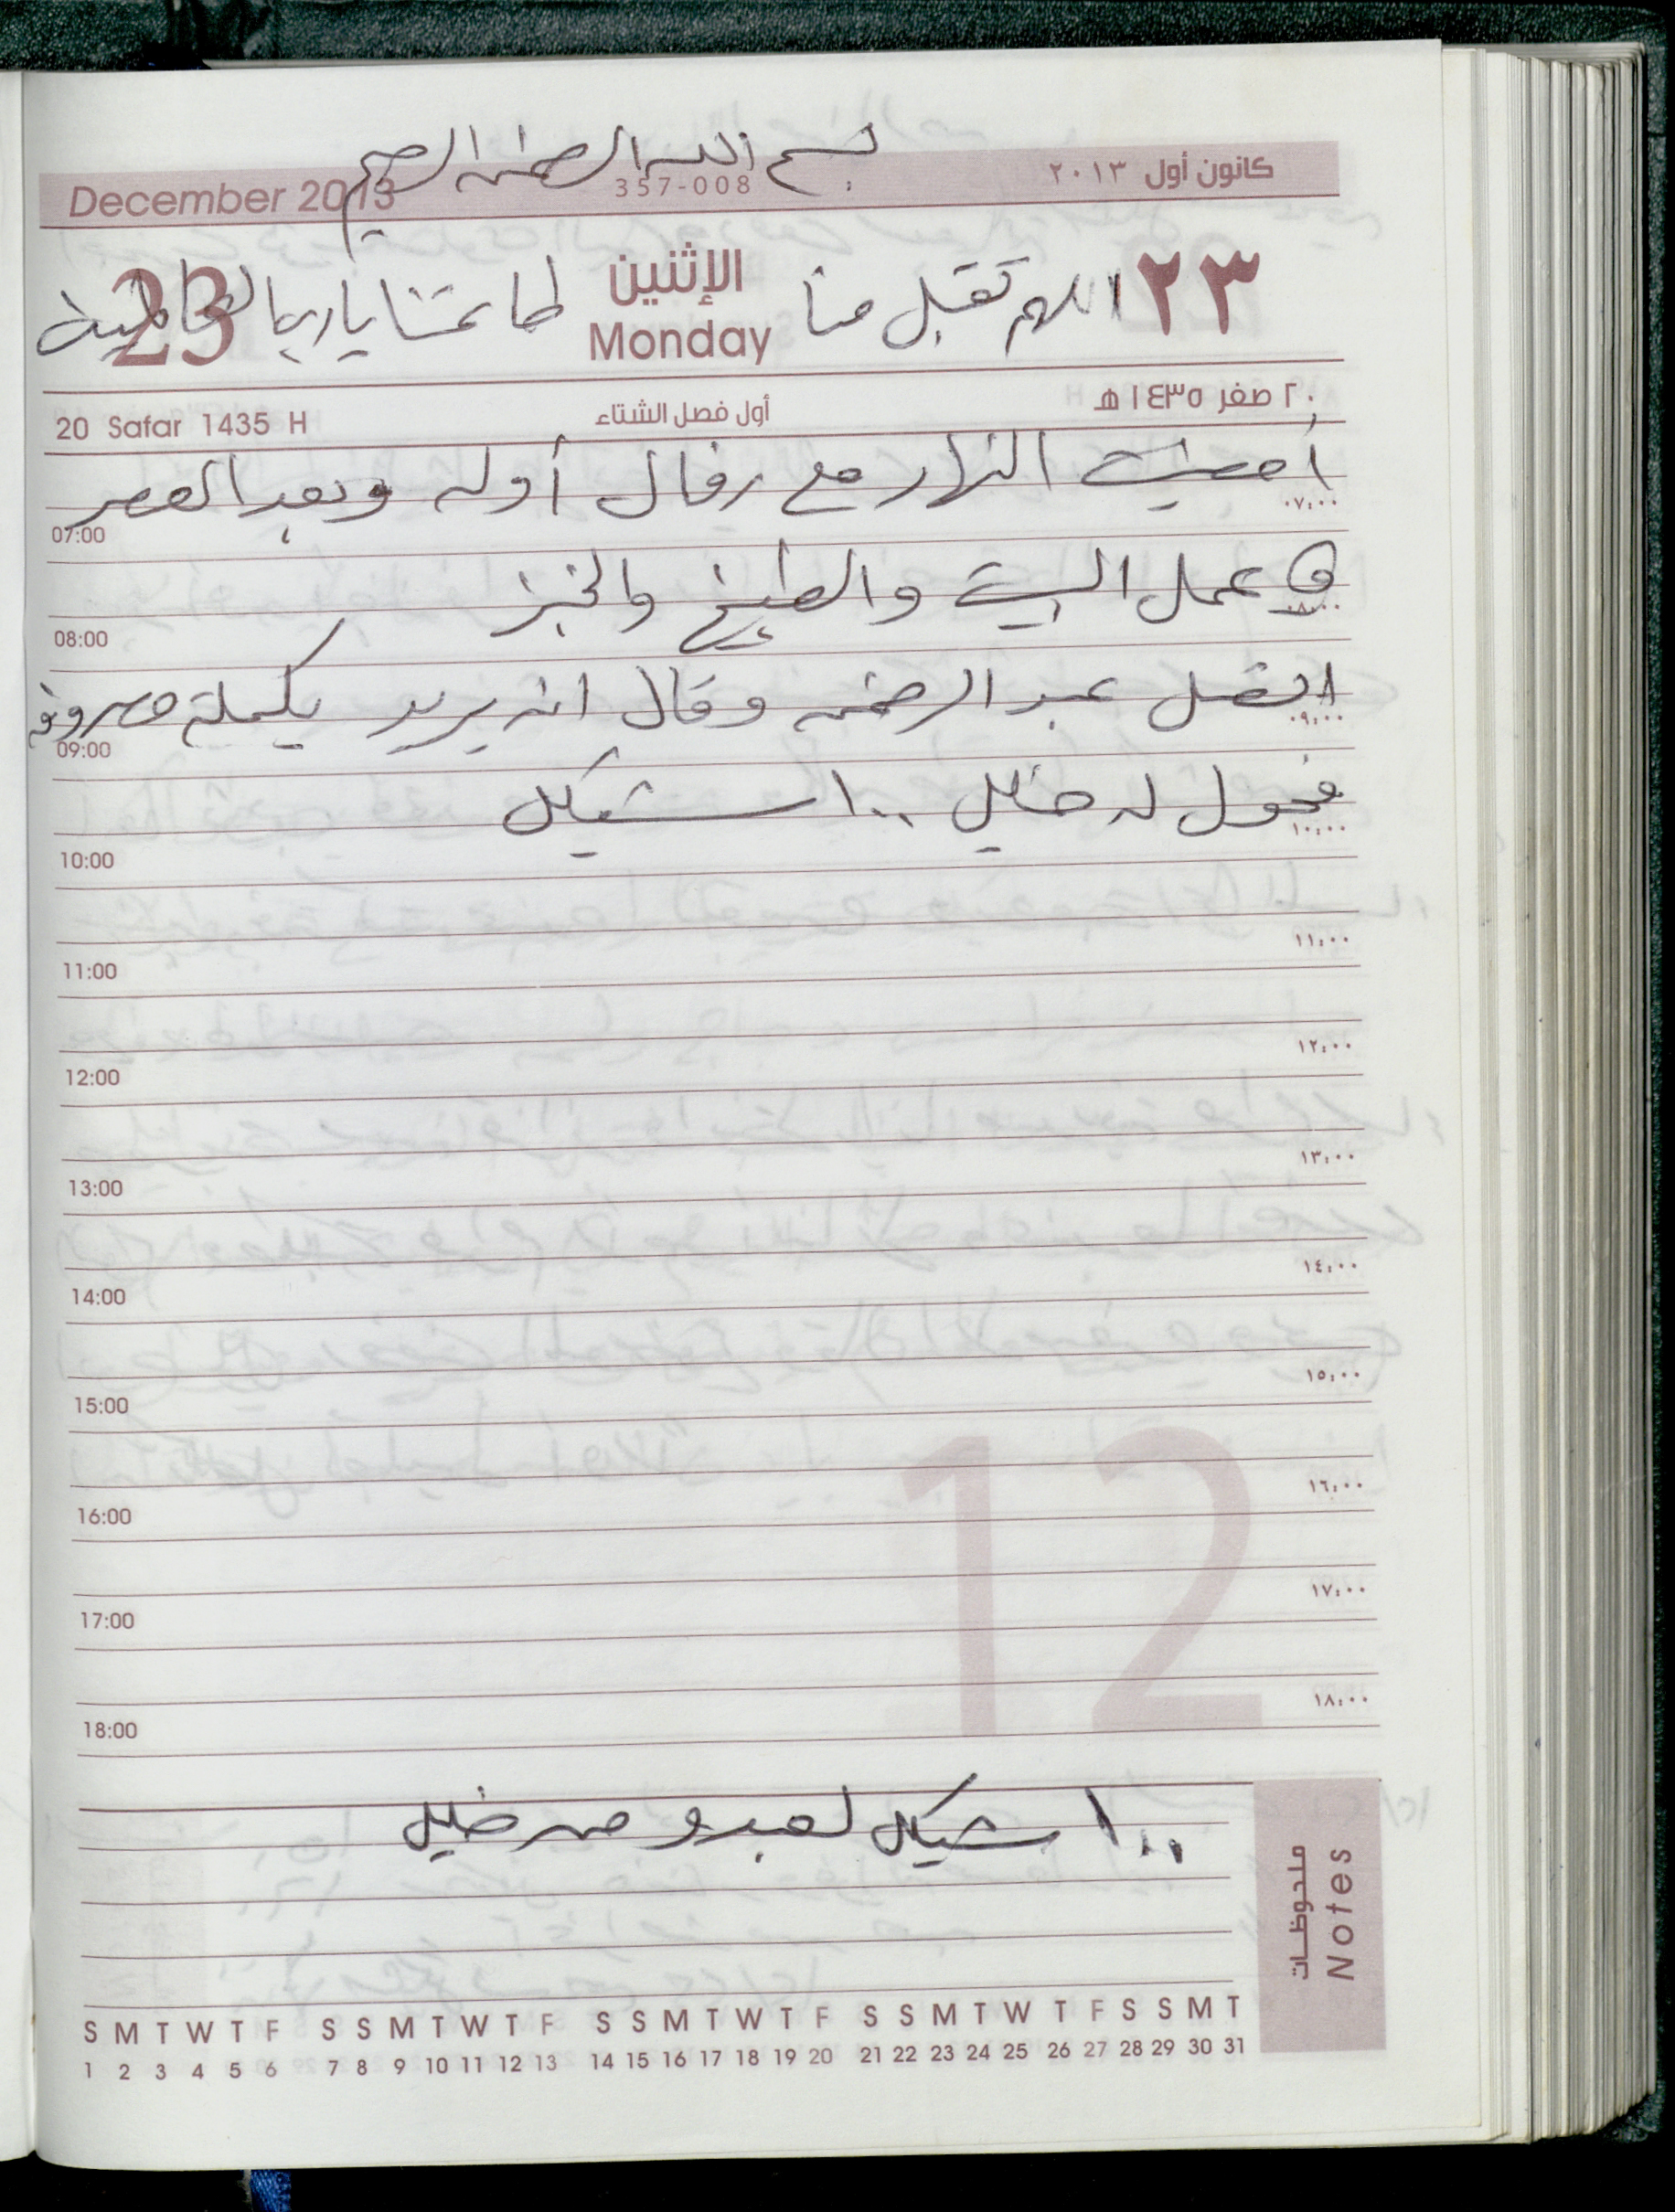 بسم الله الرحمن الرحيم
December 2013 357-008 كانون أول ٢٠١٣
٢٣ الإثنين Monday 23
اللهم تقبل منا طاعتنا يا رب العالمين
20 Safar 1435 H أول فصل الشتاء ٢٠ صفر ١٤٣٥ هـ
أمضيت النهار مع رفال أوله وبعد العصر
07:00 ٠٧:٠٠
في عمل البيت والطبيخ والخبز
08:00 ٠٨:٠٠
اتصل عبد الرحمن وقال انه يريد تكملة مصروفه
09:00 ٠٩:٠٠
فحول له خليل ١٠٠ شيكل
10:00 ١٠:٠٠
11:00 ١١:٠٠
12:00 ١٢:٠٠
13:00 ١٣:٠٠
14:00 ١٤:٠٠
15:00 ١٥:٠٠
16:00 ١٦:٠٠
17:00 ١٧:٠٠
18:00 ١٨:٠٠
12
١٠٠ شيكل لعبدو من خليل
ملحوظات
Notes
S M T W T F S S M T W T F S S M T W T F S S M T W T F S S M T
1 2 3 4 5 6 7 8 9 10 11 12 13 14 15 16 17 18 19 20 21 22 23 24 25 26 27 28 29 30 31